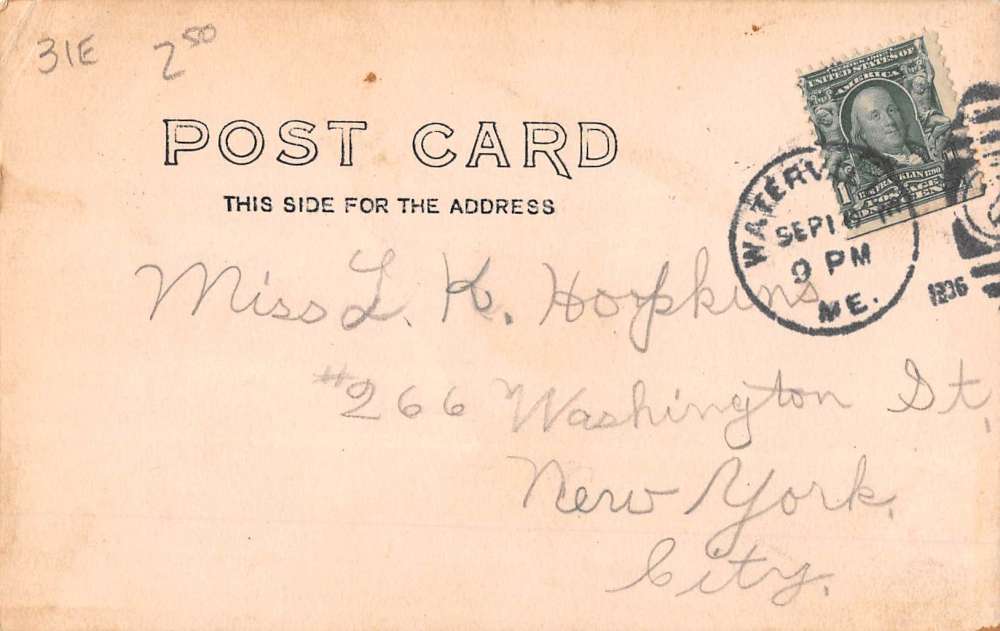 31E 2 50
POST CARD
THIS SIDE FOR THE ADDRESS
UNITED STATES OF
AMERICA
SEP 1
9 PM
ME.
Miss L. K. Hopkins
#266 Washington St.
New York.
City.